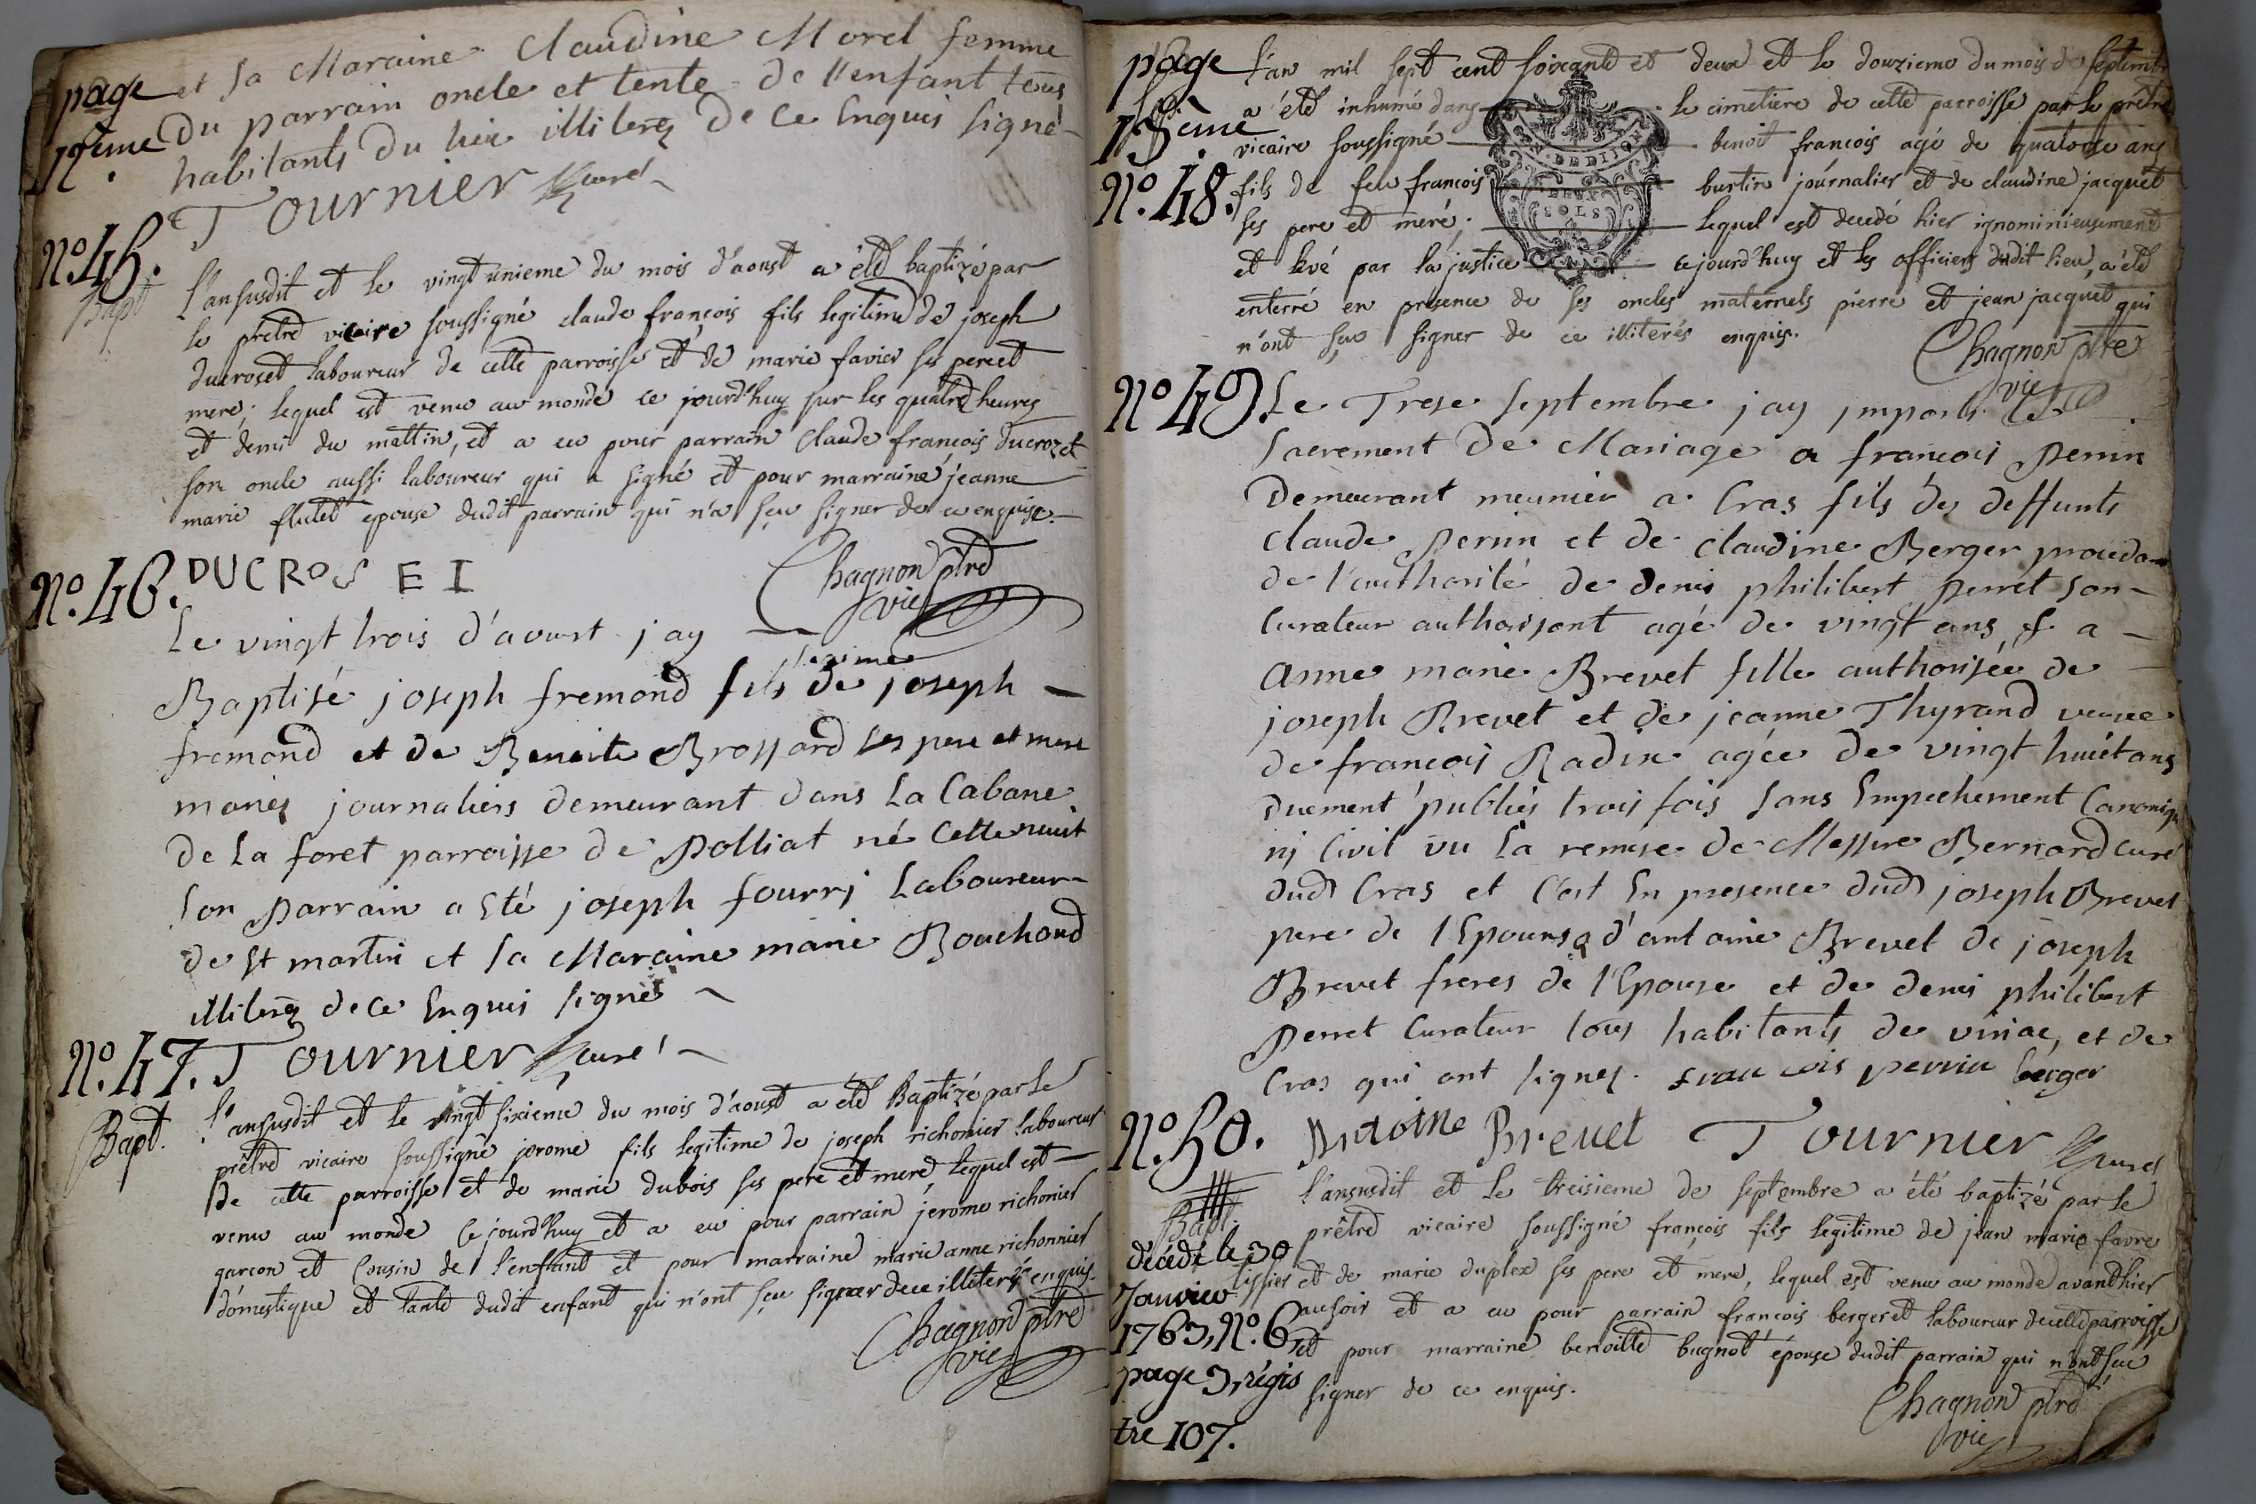 page et sa Maraine Claudine Morel femme
12ème du parrain oncle et tente de l'enfant tous
habitants du lieu illiterez de ce Enquis signé
Tournier curé
No. 45.
Bapt l'ansusdit et le vingt unieme du mois d'aoust a été baptizé par
le prêtre vicaire soussigné claude françois fils legitime de joseph
ducroset laboureur de cette parroisse et de marie favier ses pere et
mere; lequel est venu au monde ce jourd'huy sur les quatre heures
et demi du mattin, et a eu pour parrain claude françois ducrozet
son oncle aussi laboureur qui a signé et pour marraine jeanne
marie flutet epouse dudit parrain qui n'a sçu signer de ce enquise.
No. 46. DUCROS E I
Chagnon ptre
vic
Le vingt trois d'aoust jay
legitime
Baptisé joseph fremond fils de joseph
fremond et de Benoite Brossard ses pere et mere
mariez journaliers demeurant dans la Cabane
de la foret parroisse de Polliat né cette nuit
son Parrain a Eté joseph fourrj Laboureur
de St martin et sa Maraine marie Bouchard
illiterez de ce Enquis signé
No. 47. Tournier curé
Bapt. l'ansusdit et le vingt sixieme du mois d'aoust a été Baptizé par le
prêtre vicaire soussigné jerome fils legitime de joseph richonier laboureur
de cette parroisse et de marie dubois ses pere et mere, lequel est
venu au monde ce jourd'huy et a eu pour parrain jerome richonier
garçon et Cousin de l'enfant et pour marraine marie anne richonnier
domestique et tante dudit enfant qui n'ont sçu signer de ce illiterés enquis.
Chagnon ptre
vic
page l'an mil sept cent soixante et deux et le douzieme du mois de septembre
13ème a été inhumé dans le cimetiere de cette parroisse par le prêtre
vicaire soussigné benoit françois agé de quatorze ans
No. 48. fils de feu françois burtin journalier et de claudine jacquet
DE DIJON
DEUX
SOLS
ses pere et mere; lequel est decedé hier ignominieusement
et levé par la justice cejourd'huy et les officiers dudit lieu, a été
enterré en presence de ses oncles maternels pierre et jean jacquet qui
n'ont sçu signer de ce illiterés enquis.
Chagnon ptre
vic
No. 49. Le Trese septembre jay imparti le
sacrement de Mariage a francois Perrin
Demeurant meunier a Cras fils des deffunts
claude Perrin et de claudine Berger procedant
de l'authorité de denis philibert Perret son
Curateur authorisant agé de vingt ans, & a
Anne marie Brevet fille authorisée de
joseph Brevet et de jeanne Thyrand veuve
de francois Radix agée de vingt huit ans
duement publiés trois fois sans Empechement Canonique
nj Civil vu la remise de Messire Bernard curé
dud Cras et c'est En presence dud joseph Brevet
pere de l'Epouse, d'antoine Brevet de joseph
Brevet freres de l'Epouse et de denis philibert
Perret Curateur tous habitants de viriac, et de
Cras qui ont signez. francois perrin berger
No. 50. Antoine Brevet Tournier curé
Bapt. l'ansusdit et le treisieme de septembre a été baptizé par le
prêtre vicaire soussigné françois fils legitime de jean marie favre
décédé le 30 tissier et de marie duplex ses pere et mere, lequel est venu au monde avanthier
Janvier au soir et a eu pour parrain françois bergeret laboureur de cette parroisse
1763, No. 6 et pour marraine benoitte bugnot épouse dudit parrain qui n'ont sçu
page 3, régis signer de ce enquis.
tre 107.
Chagnon ptre
vic